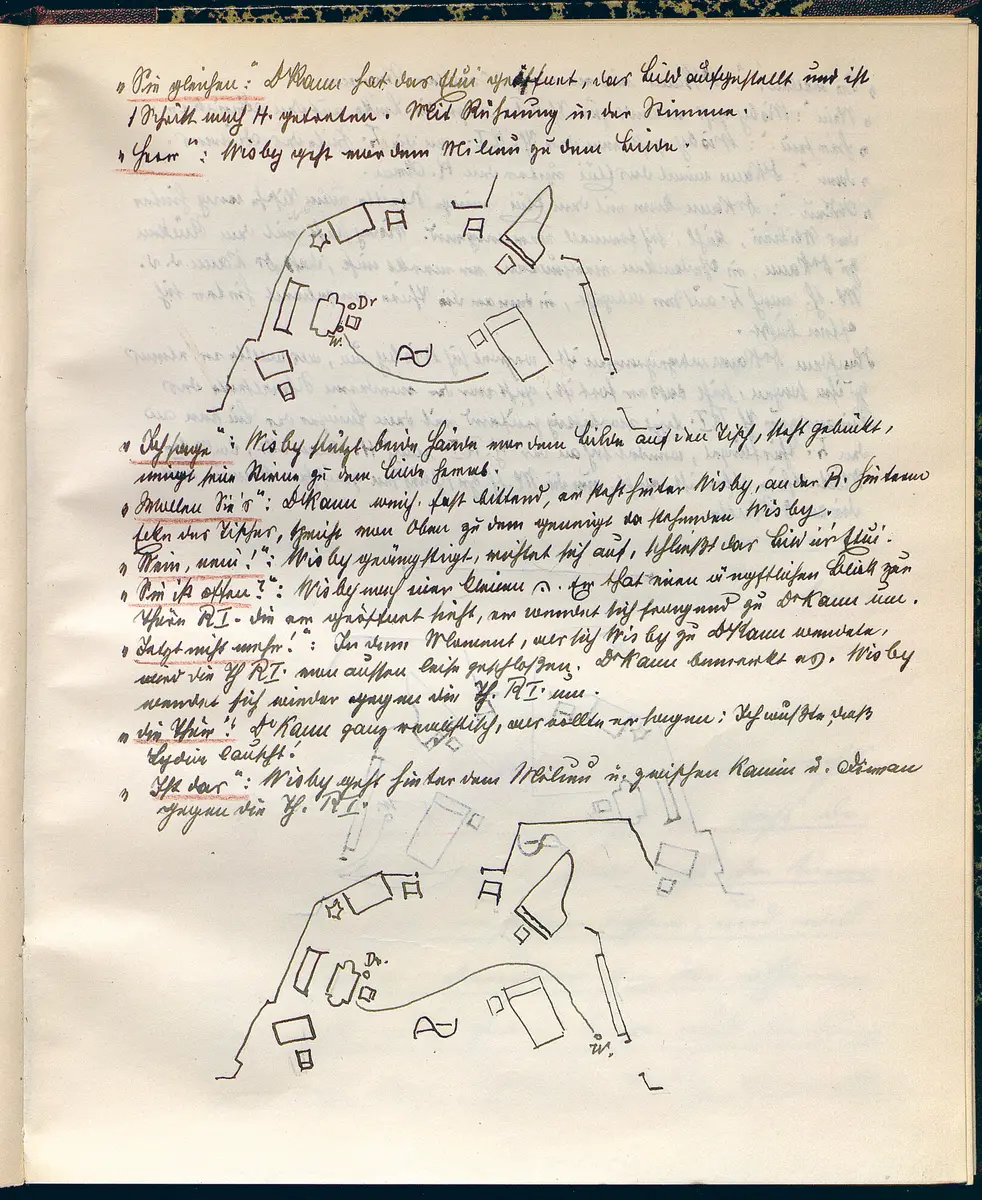 "Sie gleichen": Dr Kann hat das Etui geöffnet, das Bild aufgestellt und ist
1 Schritt nach H. getreten. Mit Rührung in der Stimme.
"Herr": Wisby geht vor dem Milieu zu dem Bilde.
Dr
W.
"Ich sage": Wisby stützt beide Hände vor dem Bilde auf den Tisch, steht gebückt,
neigt seine Stirne zu dem Bilde herab.
"Wollen Sie's": Dr Kann weich. fast bittend, er steht hinter Wisby, an der R. hinteren
Ecke des Tisches, spricht von Oben zu dem geneigt da stehenden Wisby.
"Nein, nein!": Wisby geängstigt, richtet sich auf, schließt das Bild in's Etui.
"Sie ist offen?": Wisby nach einer kleinen Er that einen ängstlichen Blick zur
Thüre R I. die er geöffnet sieht, er wendet sich fragend zu Dr Kann um.
"Jetzt nicht mehr!": In dem Moment, als sich Wisby zu Dr Kann wendete,
wird die Th R I. von aussen leise geschloßen. Dr Kann bemerkt es. Wisby
wendet sich wieder gegen die Th. R I. um.
"die Thür": Dr Kann ganz realistisch, als wollte er sagen: Ich wußte, daß
Lydia lauscht!
"Ist das": Wisby geht hinter dem Milieu u. zwischen Kamin u. Divan
gegen die Th. R I.
Dr.
W.